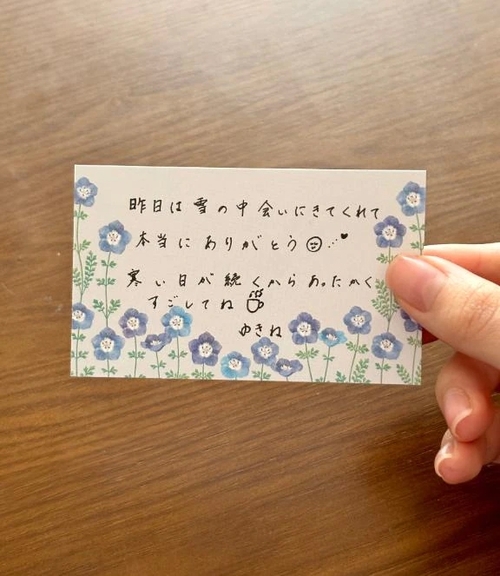 昨日は雪の中会いにきてくれて
本当にありがとう
寒い日が続くからあったかく
すごしてね
ゆきね